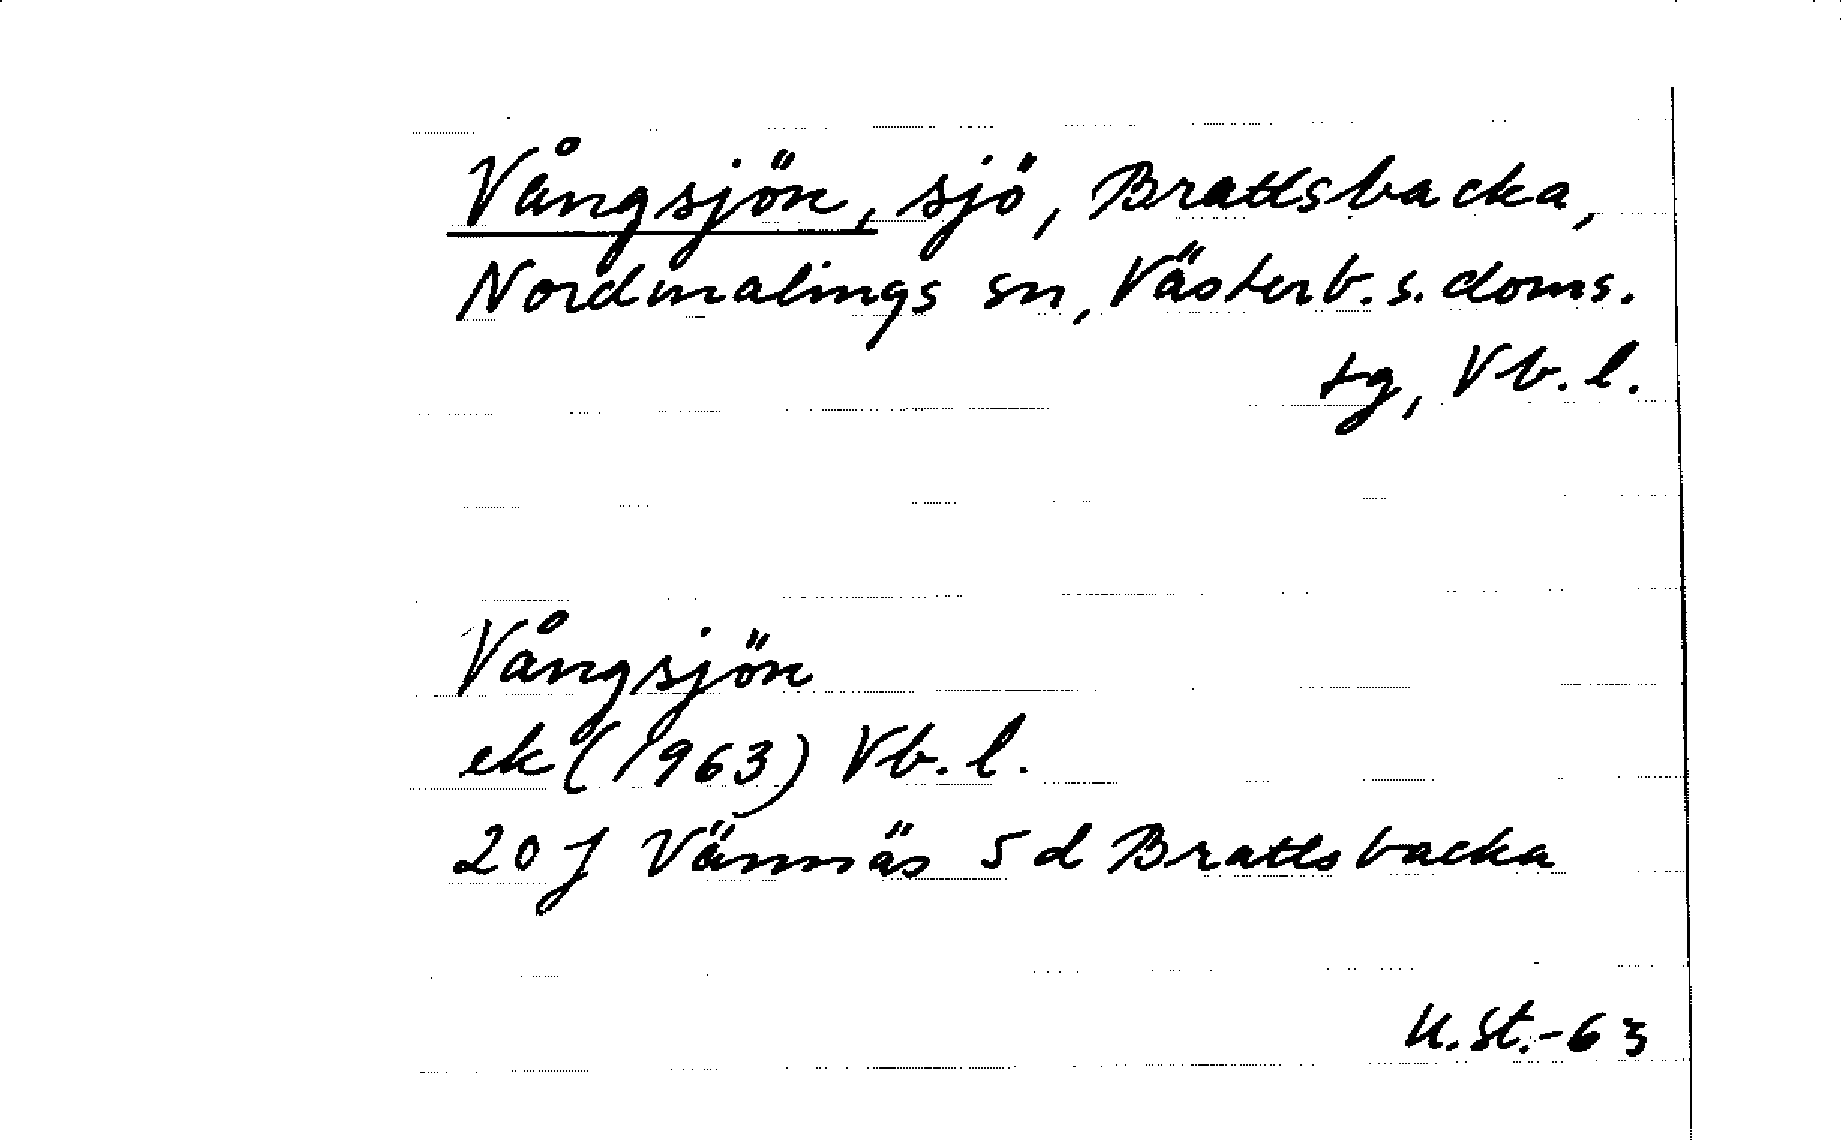 Vångsjön, sjö, Brattsbacka,
Nordmalings sn, Västerb. s. doms.
tg, Vb. l.
Vångsjön
ek (1963) Vb. l.
20 J Vännäs 5 d Brattsbacka
U. St.-63